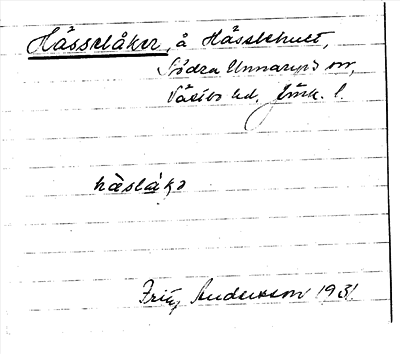 Hässelåker, å Hässlehult,
Södra Unnaryds sn,
Västbo hd, Jönk. l.
hàslákə
Fritz Anderson 1931